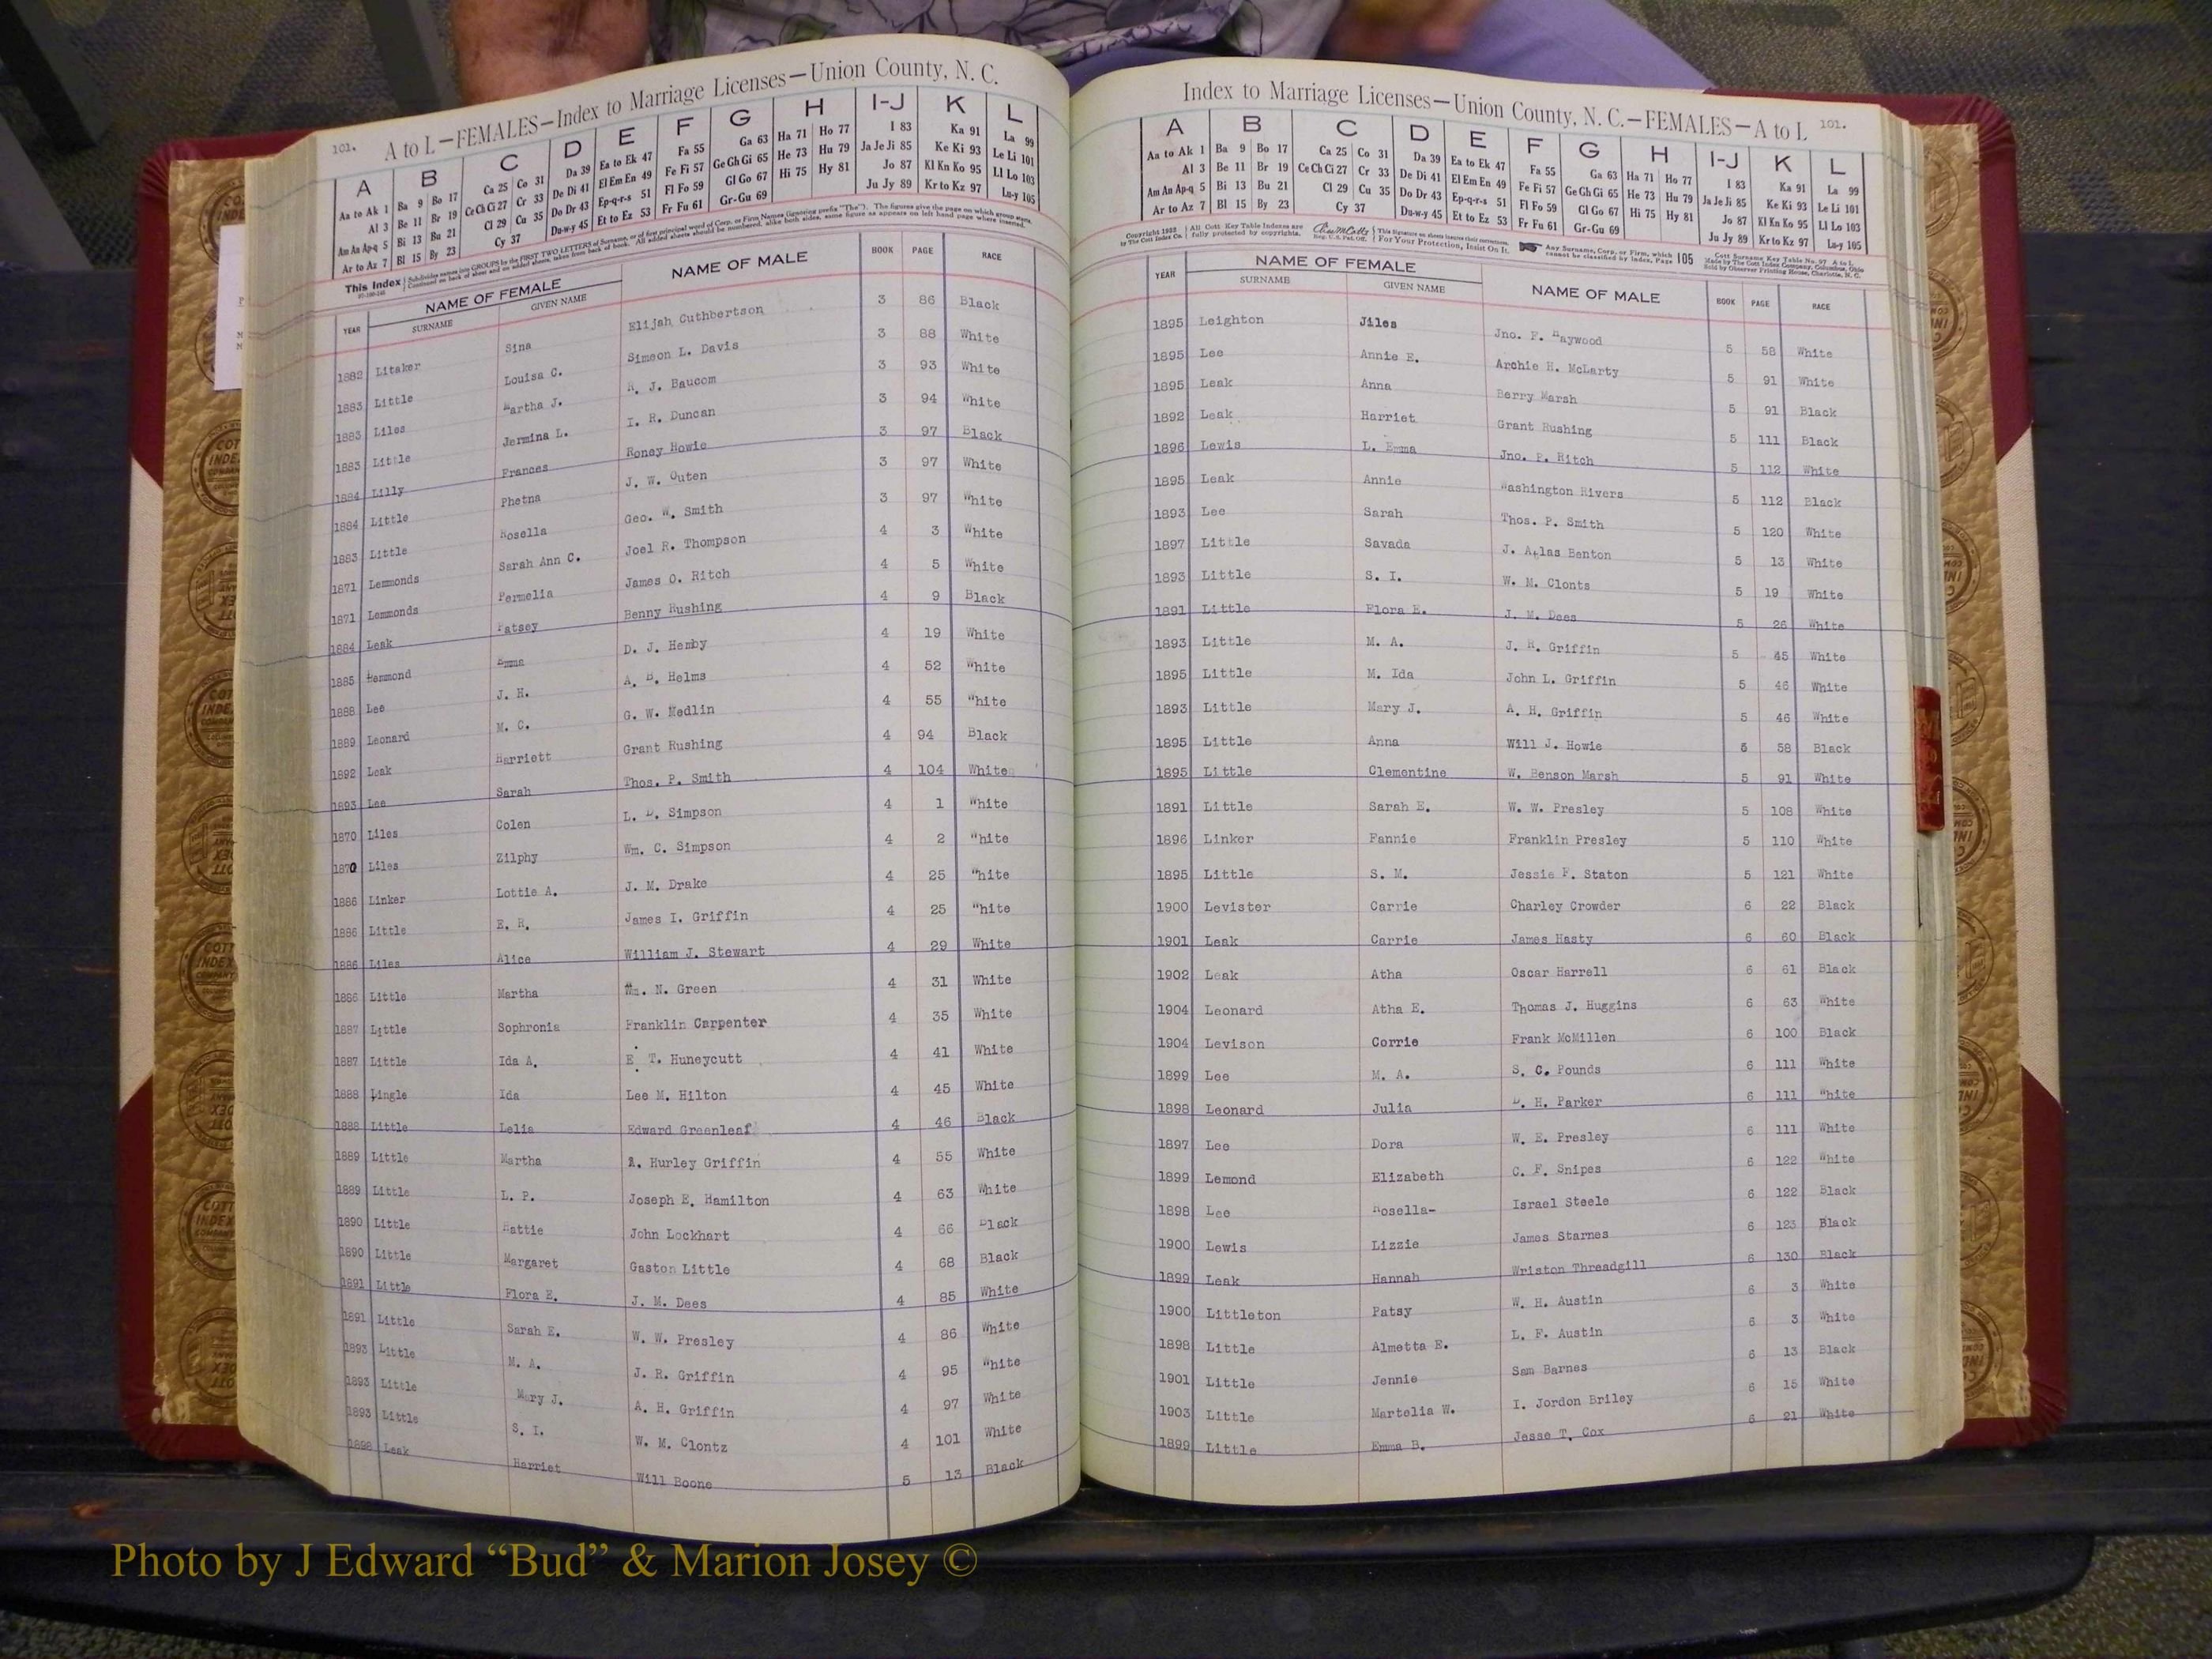 101. A to L—FEMALES—Index to Marriage Licenses—Union County, N. C.
A B C D E F G H I-J K L
Aa to Ak 1 Ba 9 Bo 17 Ca 25 Co 31 Da 39 Ea to Ek 47 Fa 55 Ga 63 Ha 71 Ho 77 I 83 Ka 91 La 99
Al 3 Be 11 Br 19 Ce Ch Ci 27 Cr 33 De Di 41 El Em En 49 Fe Fi 57 Ge Gh Gi 65 He 73 Hu 79 Ja Je Ji 85 Ke Ki 93 Le Li 101
Am An Ap-q 5 Bi 13 Bu 21 Cl 29 Cu 35 Do Dr 43 Ep-q-r-s 51 Fl Fo 59 Gl Go 67 Hi 75 Hy 81 Jo 87 Kl Kn Ko 95 Ll Lo 103
Ar to Az 7 Bl 15 By 23 Cy 37 Du-w-y 45 Et to Ez 53 Fr Fu 61 Gr-Gu 69 Ju Jy 89 Kr to Kz 97 Lu-y 105
This Index Subdivides names into GROUPS by the FIRST TWO LETTERS of Surname, or of first principal word of Corp. or Firm Names (ignoring prefix "The"). The figures give the page on which group starts.
Continued on back of sheet and on added sheets, taken from back of book. All added sheets should be numbered, alike both sides, same figure as appears on left hand page where inserted.
YEAR NAME OF FEMALE NAME OF MALE BOOK PAGE RACE
SURNAME GIVEN NAME
1882 Litaker Sina Elijah Cuthbertson 3 86 Black
1883 Little Louisa C. Simeon L. Davis 3 88 White
1883 Liles Martha J. J. Baucom 3 93 White
1883 Little Jermina L. I. R. Duncan 3 94 White
1884 Lilly Frances Roney Howie 3 97 Black
1884 Little Phetna J. W. Outen 3 97 White
1883 Little Rosella Geo. W. Smith 3 97 White
1871 Lemmonds Sarah Ann C. Joel R. Thompson 4 3 White
1871 Lemmonds Permelia James O. Ritch 4 5 White
1884 Leak Patsey Benny Rushing 4 9 Black
1885 Hemmond Emma D. J. Hemby 4 19 White
1888 Lee J. H. A. B. Helms 4 52 White
1889 Leonard M. C. G. W. Medlin 4 55 White
1892 Leak Harriett Grant Rushing 4 94 Black
1893 Lee Sarah Thos. P. Smith 4 104 White
1870 Liles Colen L. D. Simpson 4 1 White
1870 Liles Zilphy Wm. C. Simpson 4 2 White
1886 Linker Lottie A. J. M. Drake 4 25 White
1886 Little E. R. James I. Griffin 4 25 White
1886 Liles Alice William J. Stewart 4 29 White
1886 Little Martha Wm. N. Green 4 31 White
1887 Little Sophronia Franklin Carpenter 4 35 White
1887 Little Ida A. E. T. Huneycutt 4 41 White
1888 Lingle Ida Lee M. Hilton 4 45 White
1888 Little Lelia Edward Greenleaf 4 46 Black
1889 Little Martha Hurley Griffin 4 55 White
1889 Little L. P. Joseph E. Hamilton 4 63 White
1890 Little Hattie John Lockhart 4 66 Black
1890 Little Margaret Gaston Little 4 68 Black
1891 Little Flora E. J. M. Dees 4 85 White
1891 Little Sarah E. W. W. Presley 4 86 White
1893 Little M. A. J. R. Griffin 4 95 White
1893 Little Mary J. A. H. Griffin 4 97 White
1893 Little S. I. W. M. Clontz 4 101 White
1898 Leak Harriet Will Boone 5 13 Black
Index to Marriage Licenses—Union County, N. C.—FEMALES—A to L 101.
A B C D E F G H I-J K L
Aa to Ak 1 Ba 9 Bo 17 Ca 25 Co 31 Da 39 Ea to Ek 47 Fa 55 Ga 63 Ha 71 Ho 77 I 83 Ka 91 La 99
Al 3 Be 11 Br 19 Ce Ch Ci 27 Cr 33 De Di 41 El Em En 49 Fe Fi 57 Ge Gh Gi 65 He 73 Hu 79 Ja Je Ji 85 Ke Ki 93 Le Li 101
Am An Ap-q 5 Bi 13 Bu 21 Cl 29 Cu 35 Do Dr 43 Ep-q-r-s 51 Fl Fo 59 Gl Go 67 Hi 75 Hy 81 Jo 87 Kl Kn Ko 95 Ll Lo 103
Ar to Az 7 Bl 15 By 23 Cy 37 Du-w-y 45 Et to Ez 53 Fr Fu 61 Gr-Gu 69 Ju Jy 89 Kr to Kz 97 Lu-y 105
Copyright 1922 by The Cott Index Co. All Cott Key Table Indexes are fully protected by copyrights. Reg. U. S. Pat. Off. This Signature on sheets insures their correctness. For Your Protection, Insist On It. Any Surname, Corp. or Firm, which cannot be classified by Index, Page 105 Cott Surname Key Table No. 97 A to L Made by The Cott Index Company, Columbus, Ohio Sold by Observer Printing House, Charlotte, N. C.
YEAR NAME OF FEMALE NAME OF MALE BOOK PAGE RACE
SURNAME GIVEN NAME
1895 Leighton Jiles Jno. F. Haywood 5 58 White
1895 Lee Annie E. Archie H. McLarty 5 91 White
1895 Leak Anna Berry Marsh 5 91 Black
1892 Leak Harriet Grant Rushing 5 111 Black
1896 Lewis L. Emma Jno. P. Ritch 5 112 White
1895 Leak Annie Washington Rivers 5 112 Black
1893 Lee Sarah Thos. P. Smith 5 120 White
1897 Little Savada J. Atlas Benton 5 13 White
1893 Little S. I. W. M. Clonts 5 19 White
1891 Little Flora E. J. M. Dees 5 26 White
1893 Little M. A. J. R. Griffin 5 45 White
1895 Little M. Ida John L. Griffin 5 46 White
1893 Little Mary J. A. H. Griffin 5 46 White
1895 Little Anna Will J. Howie 5 58 Black
1895 Little Clementine W. Benson Marsh 5 91 White
1891 Little Sarah E. W. W. Presley 5 108 White
1896 Linker Fannie Franklin Presley 5 110 White
1895 Little S. M. Jessie F. Staton 5 121 White
1900 Levister Carrie Charley Crowder 6 22 Black
1901 Leak Carrie James Hasty 6 60 Black
1902 Leak Atha Oscar Harrell 6 61 Black
1904 Leonard Atha E. Thomas J. Huggins 6 63 White
1904 Levison Corrie Frank McMillen 6 100 Black
1899 Lee M. A. S. C. Pounds 6 111 White
1898 Leonard Julia D. H. Parker 6 111 White
1897 Lee Dora W. E. Presley 6 111 White
1899 Lemond Elizabeth C. F. Snipes 6 122 White
1898 Lee Rosella- Israel Steele 6 122 Black
1900 Lewis Lizzie James Starnes 6 123 Black
1899 Leak Hannah Wriston Threadgill 6 130 Black
1900 Littleton Patsy W. H. Austin 6 3 White
1898 Little Almetta E. L. F. Austin 6 3 White
1901 Little Jennie Sam Barnes 6 13 Black
1903 Little Martelia W. I. Jordon Briley 6 15 White
1899 Little Emma B. Jesse T. Cox 6 21 White
Photo by J Edward “Bud” & Marion Josey ©